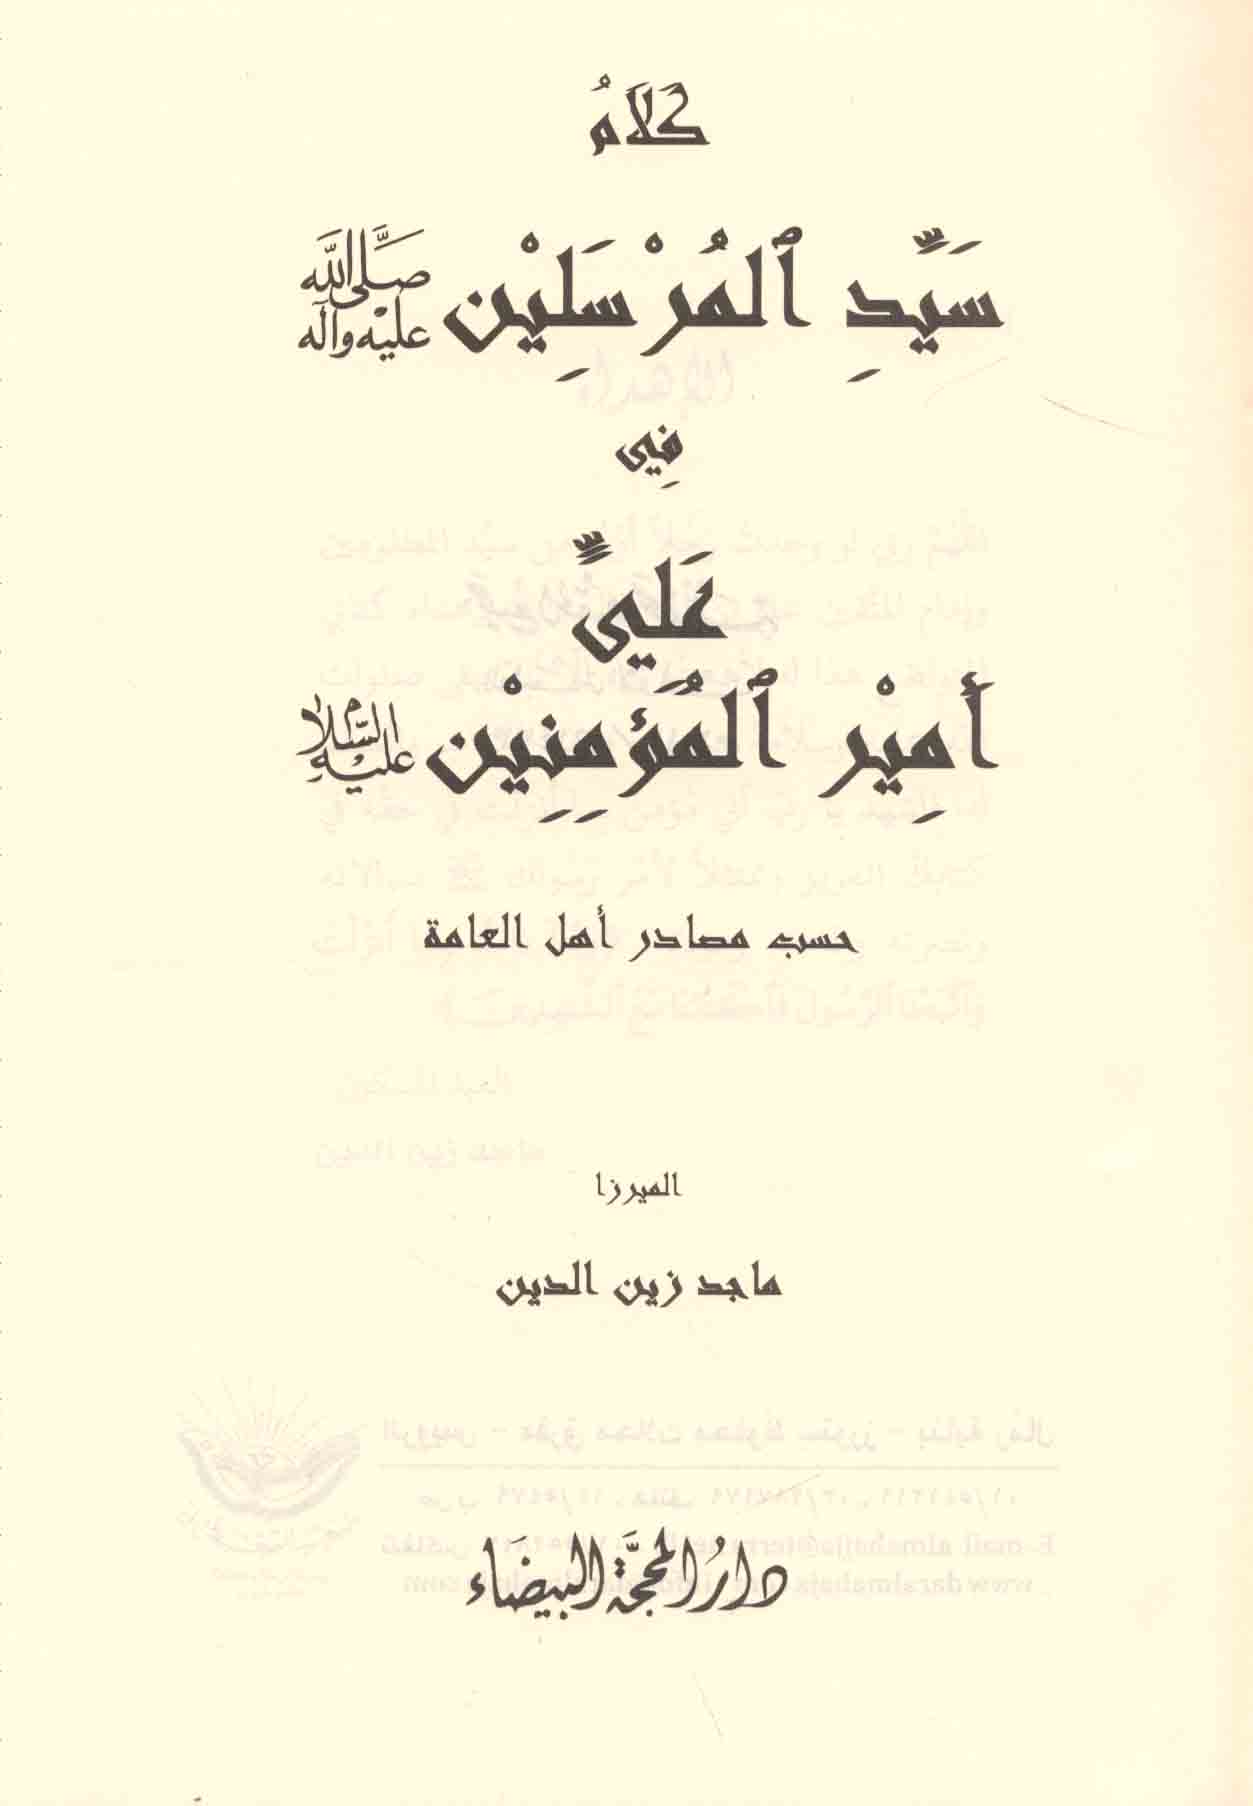 كَلَامُ
سَيِّدِ ٱلمُرْسَلِيْن صَلَّى اللَّه عَليْه وآله
فِي
عَلَيٍّ
أَمِيْرِ ٱلمُؤَمِنِيْنِ عليهِ السَّلام
حسب مصادر أهل العامة
الميرزا
ماجد زين الدين
دارُ المحجَّة البيضَاء